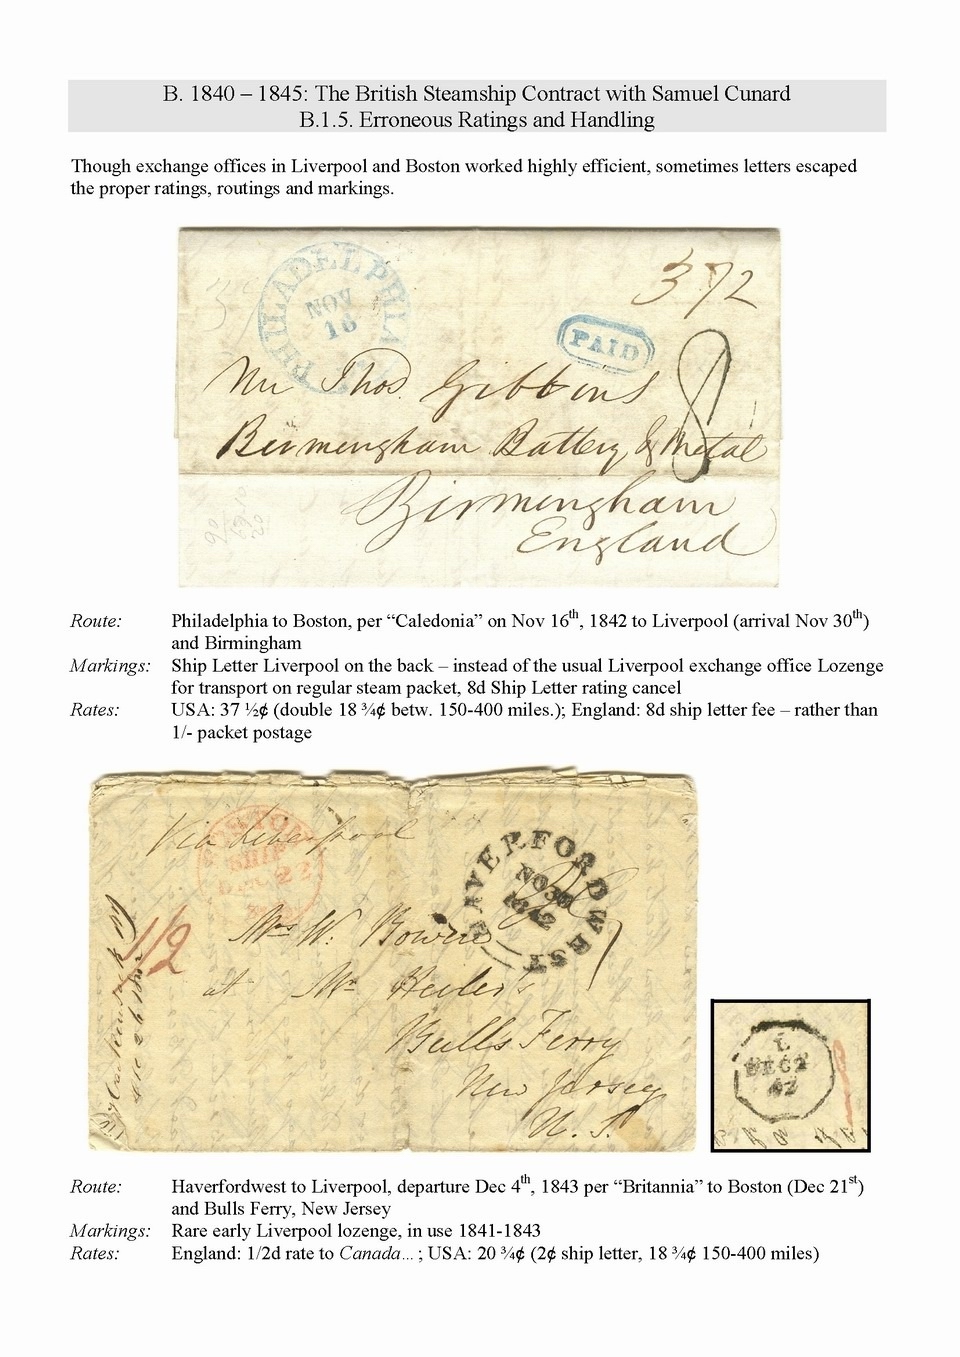 B. 1840 – 1845: The British Steamship Contract with Samuel Cunard
B.1.5. Erroneous Ratings and Handling
Though exchange offices in Liverpool and Boston worked highly efficient, sometimes letters escaped
the proper ratings, routings and markings.
PHILADELPHIA
NOV
16
37 1/2
PAID
8
Mr Thos. Gibbons
Birmingham Battery & Metal
Birmingham
England
Route: Philadelphia to Boston, per “Caledonia” on Nov 16th, 1842 to Liverpool (arrival Nov 30th)
and Birmingham
Markings: Ship Letter Liverpool on the back – instead of the usual Liverpool exchange office Lozenge
for transport on regular steam packet, 8d Ship Letter rating cancel
Rates: USA: 37 ½¢ (double 18 ¾¢ betw. 150-400 miles.); England: 8d ship letter fee – rather than
1/- packet postage
Via Liverpool
BOSTON
SHIP
DEC 22
HAVERFORDWEST
NO 30
1842
1/2
Mrs W. Bowen
at Mr
Bulls Ferry
New Jersey
U. S.
L
DEC 2
42
Route: Haverfordwest to Liverpool, departure Dec 4th, 1843 per “Britannia” to Boston (Dec 21st)
and Bulls Ferry, New Jersey
Markings: Rare early Liverpool lozenge, in use 1841-1843
Rates: England: 1/2d rate to Canada... ; USA: 20 ¾¢ (2¢ ship letter, 18 ¾¢ 150-400 miles)